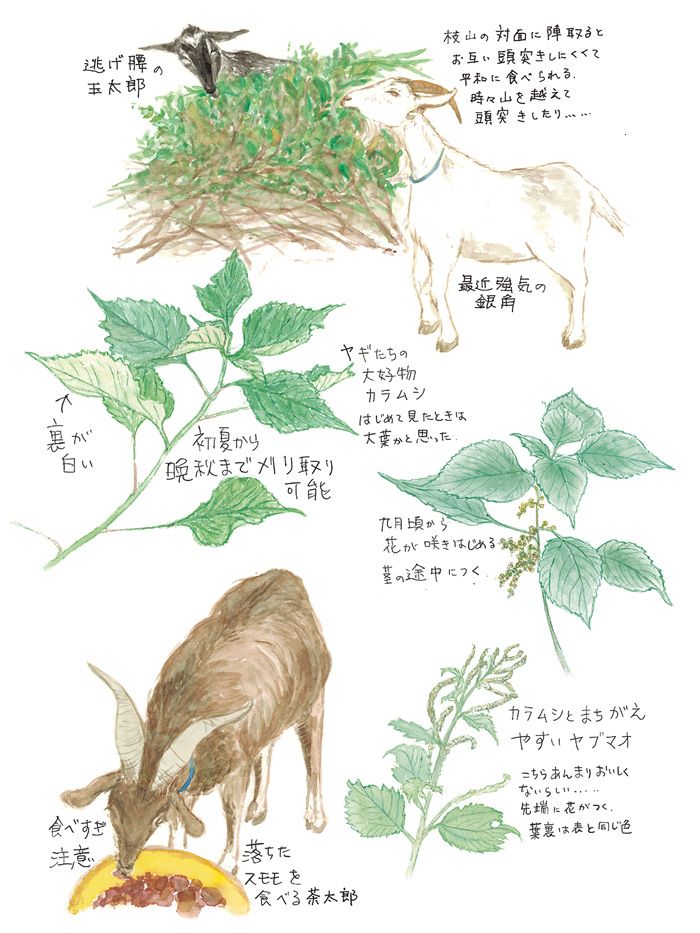 逃げ腰の
玉太郎
枝山の対面に陣取ると
お互い頭突きしにくくて
平和に食べられる.
時々山を越えて
頭突きしたり……
最近強気の
銀角
ヤギたちの
大好物
カラムシ
はじめて見たときは
大葉かと思った.
↑
裏が
白い
初夏から
晩秋まで刈り取り
可能
九月頃から
花が咲きはじめる
茎の途中につく.
カラムシとまちがえ
やすいヤブマオ
こちらあんまりおいしく
ないらしい……
先端に花がつく.
葉裏は表と同じ色
食べすぎ
注意
落ちた
スモモを
食べる茶太郎